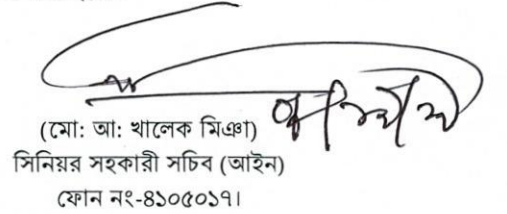 (মো: আ: খালেক মিঞা)
সিনিয়র সহকারী সচিব (আইন)
ফোন নং-৪১০৫০১৭।